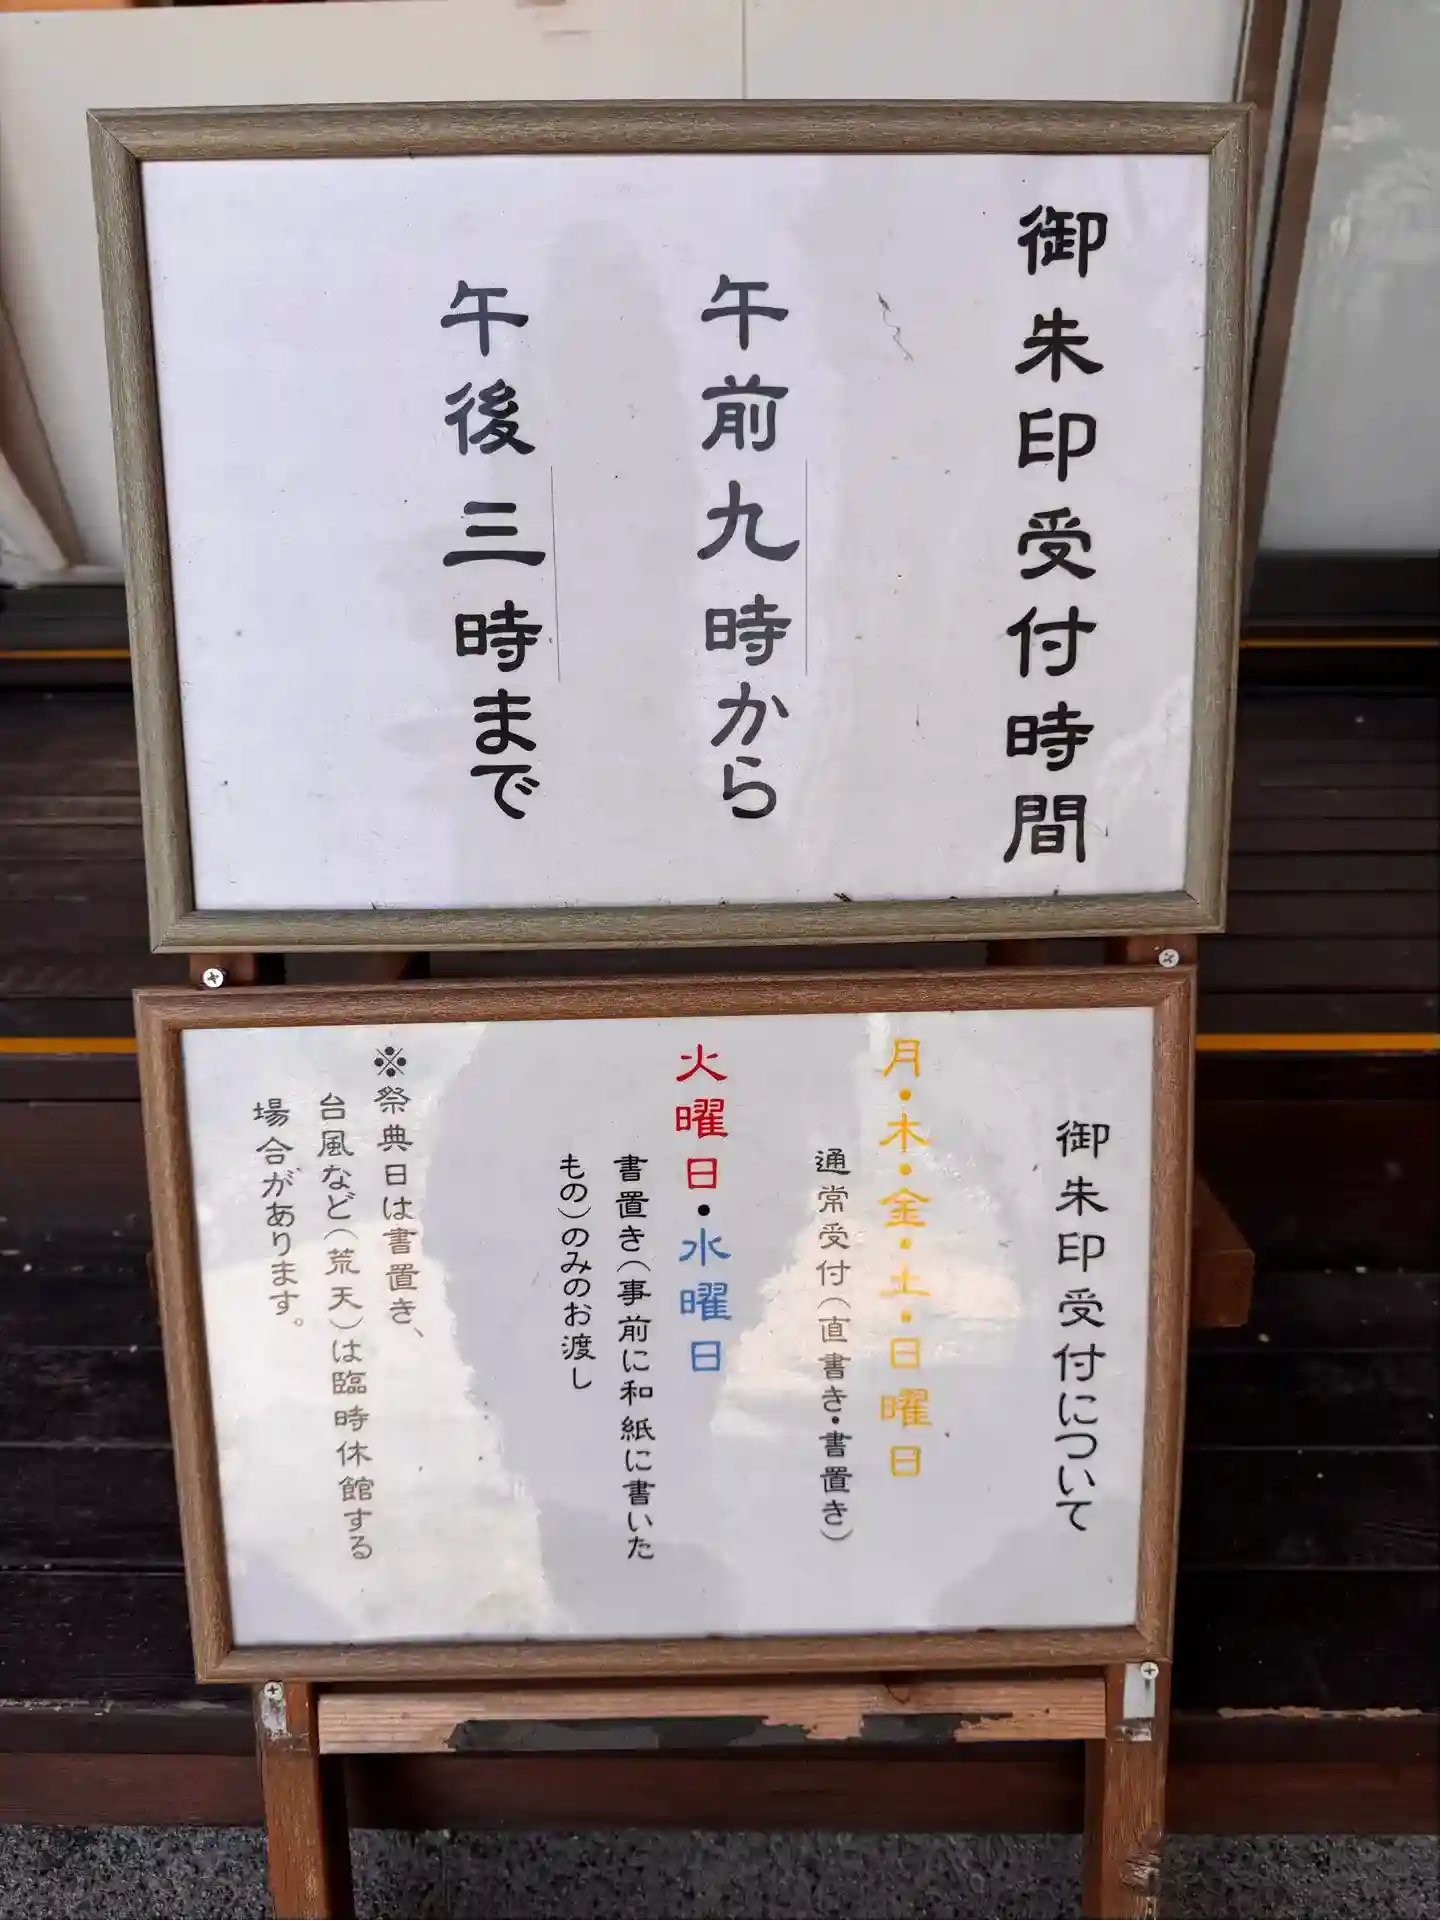 御朱印受付時間
午前九時から
午後三時まで
御朱印受付について
月・木・金・土・日曜日
通常受付(直書き・書置き)
火曜日・水曜日
書置き(事前に和紙に書いた
もの)のみのお渡し
※祭典日は書置き、
台風など(荒天)は臨時休館する
場合があります。